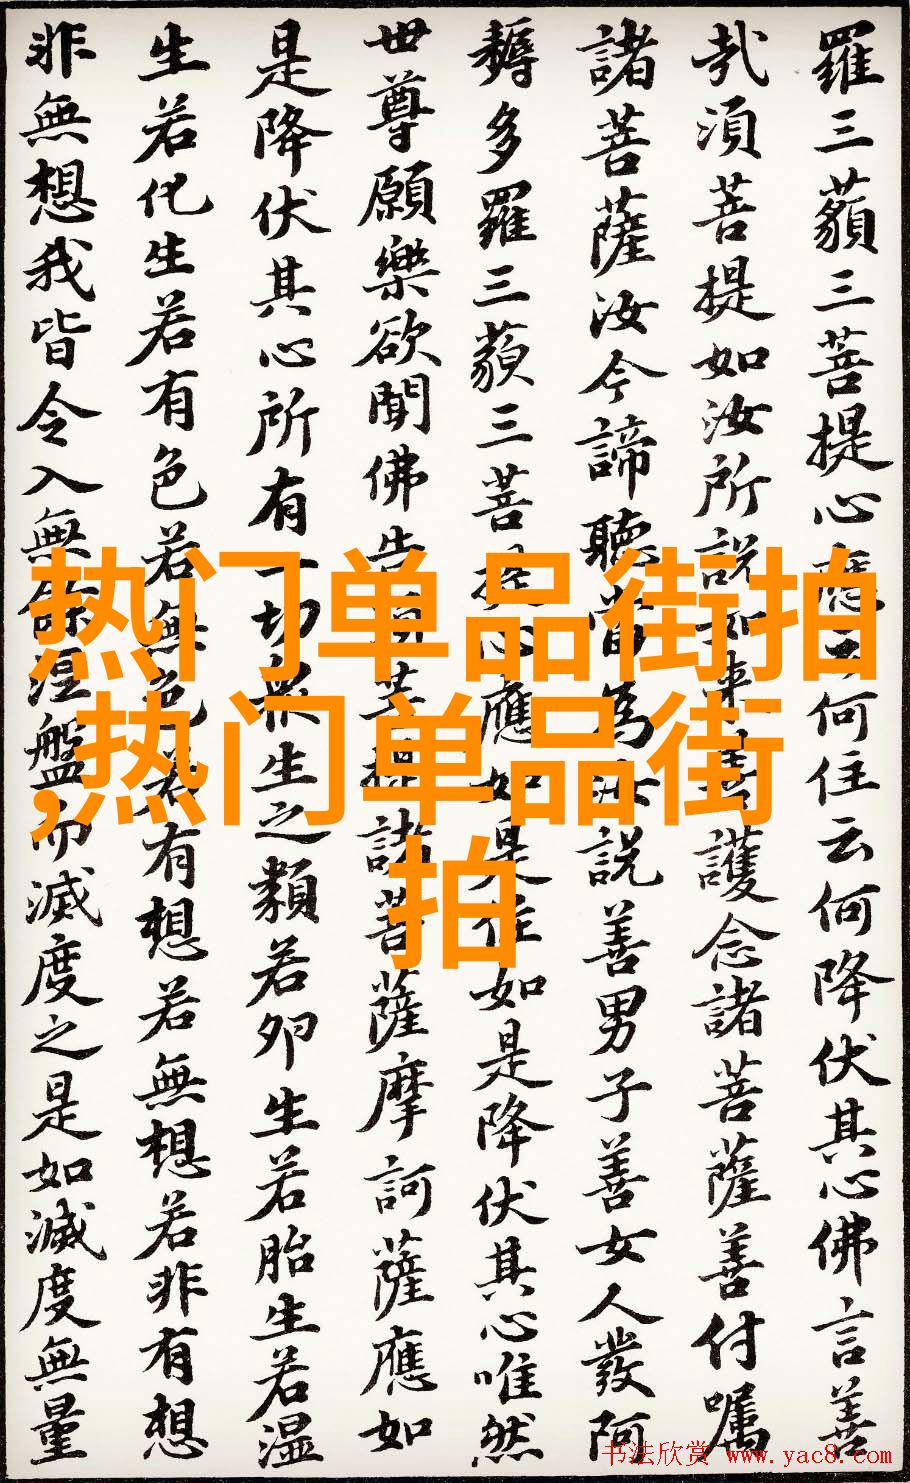 羅三藐三菩提心應云何住云何降伏其心佛言善
哉須菩提如汝所說如來善護念諸菩薩善付嘱
諸菩薩汝今諦聽當為汝說善男子善女人發阿
耨多羅三藐三菩提心應如是住如是降伏其心唯然
世尊願樂欲聞佛告須菩提諸菩薩摩訶薩應如
是降伏其心所有一切眾生之類若卵生若胎生若湿
生若化生若有色若無色若有想若無想若非有想
非無想我皆令入無餘涅盤而滅度之是如滅度無量
热门单品街拍
,热门单品街
拍
书法欣赏 www.yac8.com